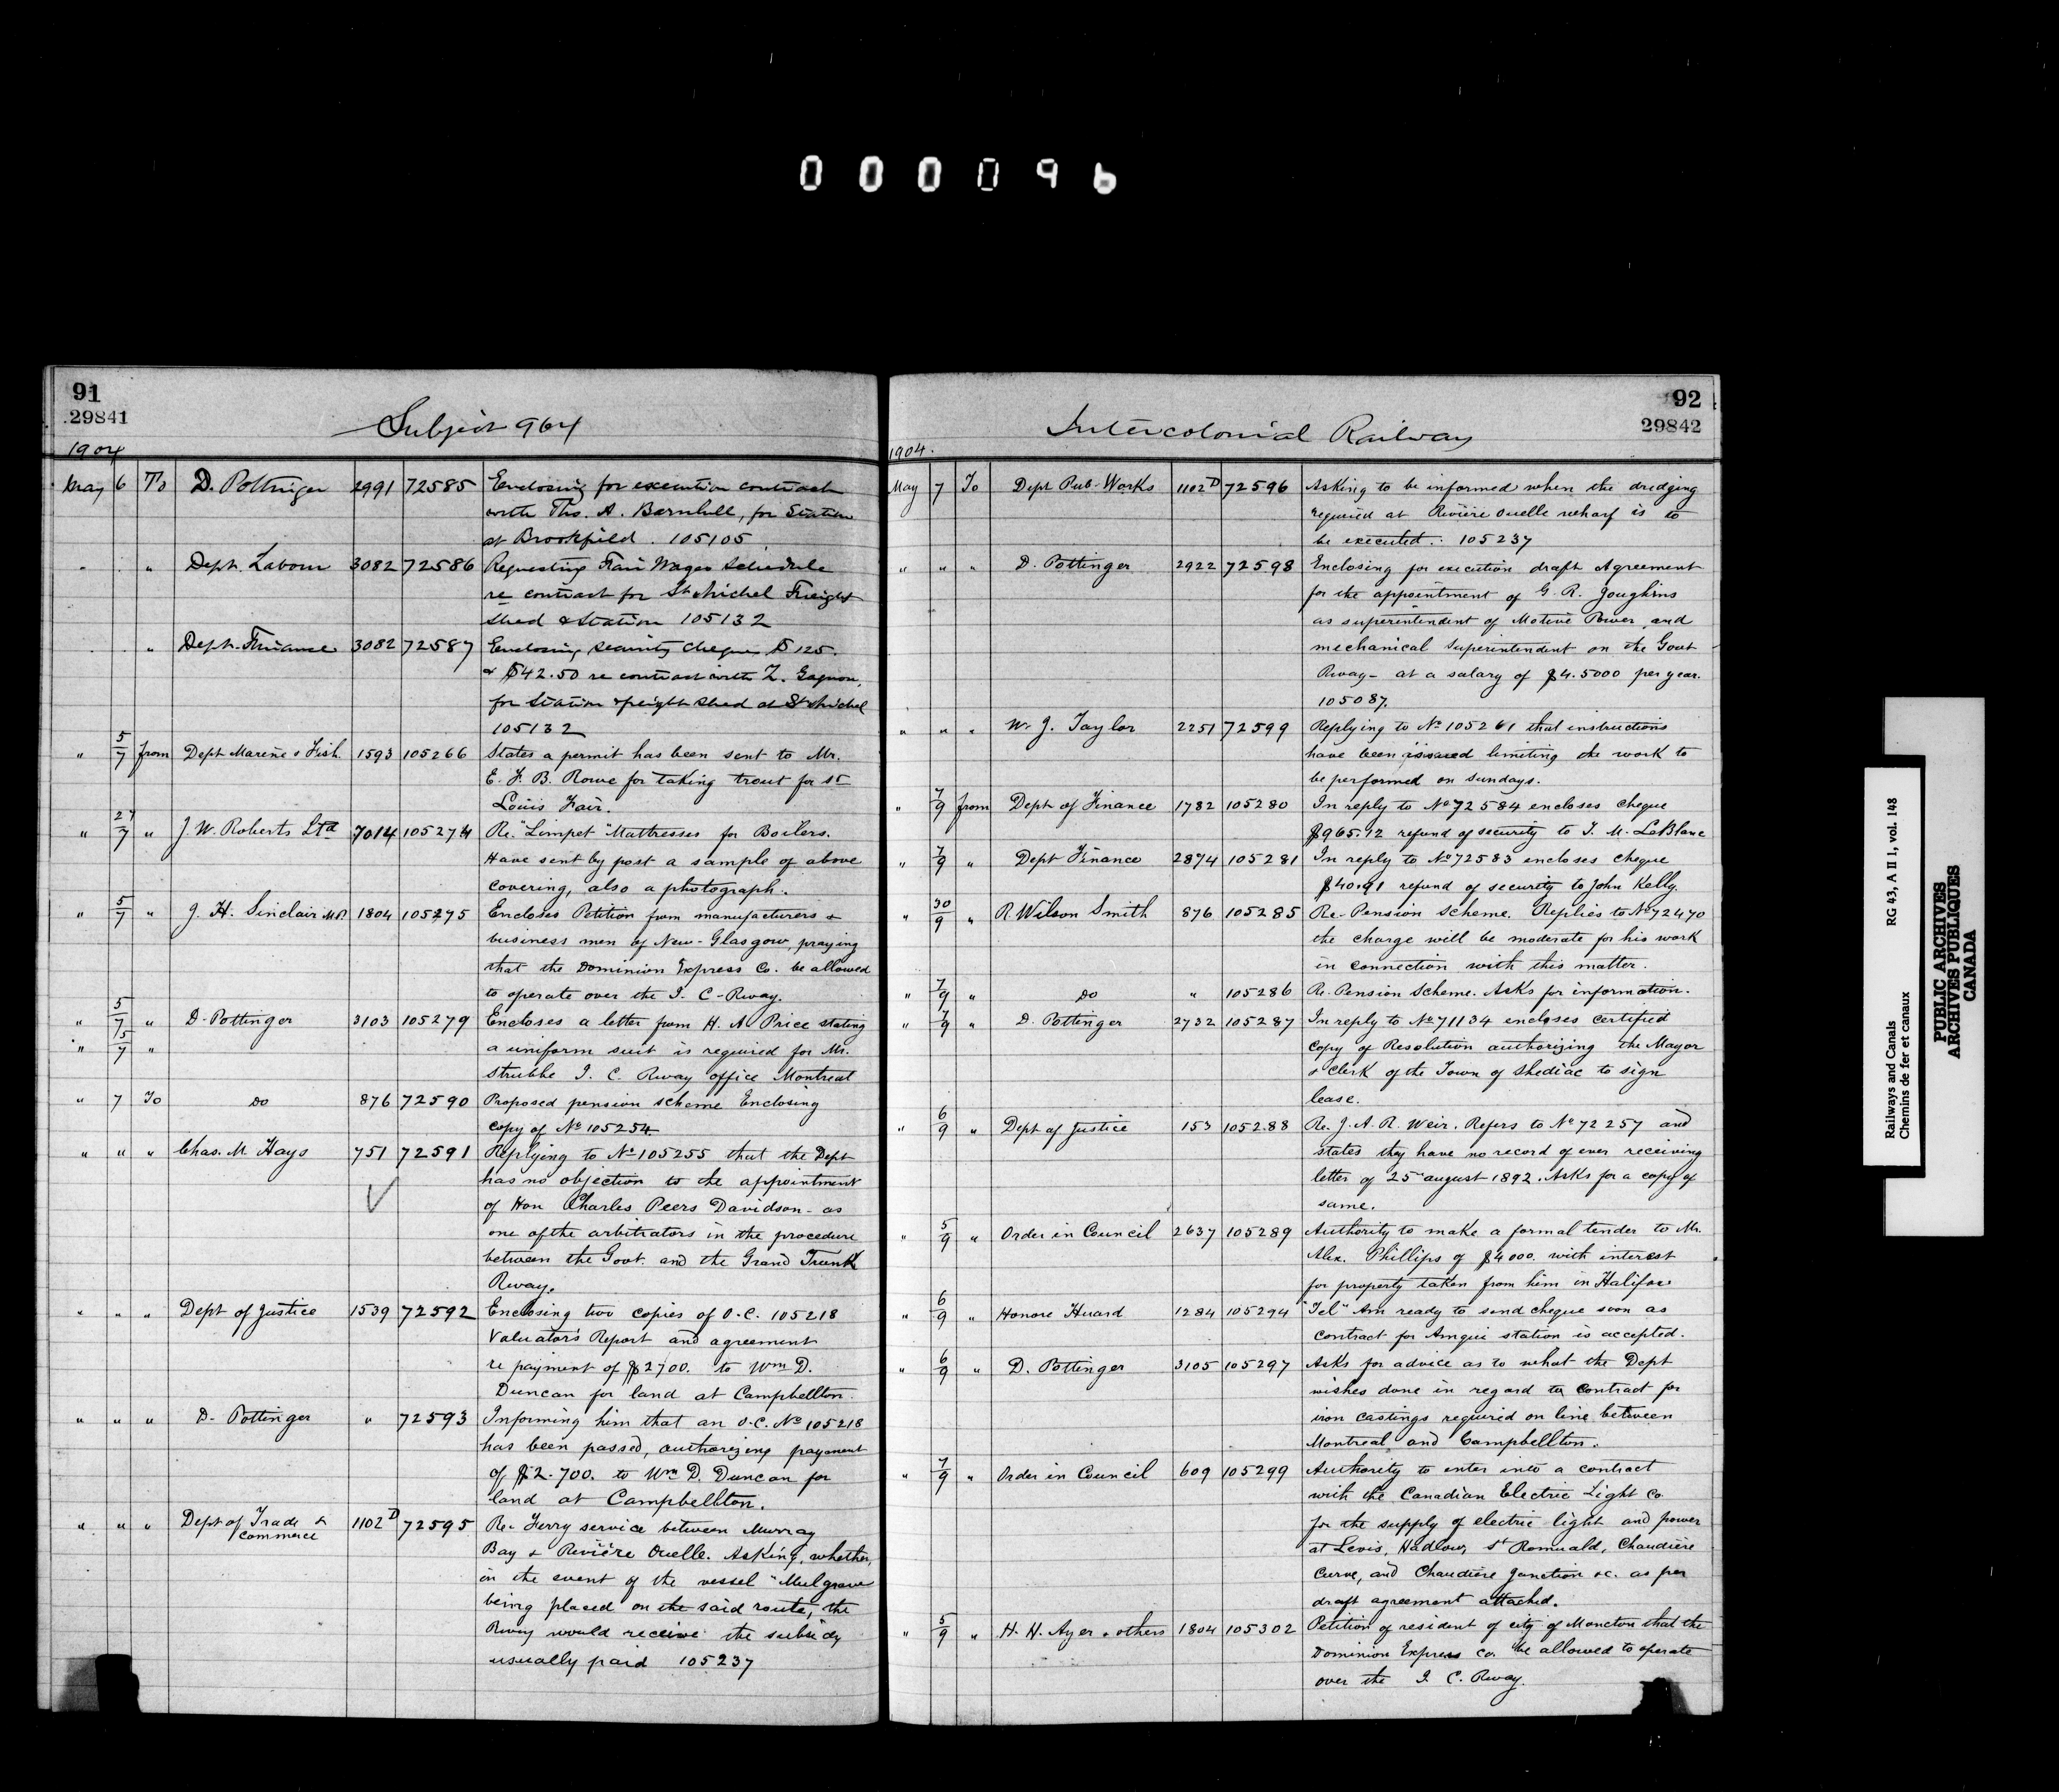 000096
91
29841
Subject 964
1904
May 6 To D. Pottinger 2991 72585 Enclosing for execution contract
with Thos. A. Barnhill, for Station
at Brookfield. 105105
" " Dept. Labour 3082 72586 Requesting Fair Wages Schedule
re contract for St Michel Freight
shed & Station 105132
" Dept. Finance 3082 72587 Enclosing security cheques $125.
& $42.50 re contract with Z. Gagnon,
for station & freight shed at St Michel
105132
" 5/7 from Dept Marine & Fish. 1593 105266 States a permit has been sent to Mr.
E. F. B. Rowe for taking trout for St
Louis Fair.
" 27/7 " J. W. Roberts Ltd 7014 105274 Re. "Limpet" Mattresses for Boilers.
Have sent by post a sample of above
covering, also a photograph.
" 5/7 " J. H. Sinclair M.P. 1804 105275 Encloses Petition from manufacturers &
business men of New-Glasgow, praying
that the Dominion Express Co. be allowed
to operate over the I. C-Rway.
" 5/7 " D-Pottinger 3103 105279 Encloses a letter from H. A. Price stating
" 5/7 " a uniform suit is required for Mr.
Strubbe I. C. Rway office Montreal
" 7 To Do 876 72590 Proposed pension scheme Enclosing
copy of No 105254
" " " Chas. M. Hays 751 72591 Replying to No 105255 that the Dept
has no objection to the appointment
of Hon Charles Peers Davidson - as
one of the arbitrators in the procedure
between the Govt. and the Grand Trunk
Rway.
" " " Dept of Justice 1539 72592 Enclosing two copies of O.C. 105218
Valuator's Report and agreement
re payment of $2700. to Wm D.
Duncan for land at Campbellton.
" " " D. Pottinger " 72593 Informing him that an O.C. No 105218
has been passed, authorizing payment
of $2.700. to Wm D. Duncan for
land at Campbellton.
" " " Dept of Trade & 1102 D 72595 Re. Ferry service between Murray
Commerce
Bay & Rivière Ouelle. Asking, whether,
in the event of the vessel "Mulgrave"
being placed on the said route, the
Rway would receive the subsidy
usually paid 105237
92
29842
Intercolonial Railway
1904.
May 7 To Dept Pub-Works 1102 D 72596 Asking to be informed when the dredging
required at Rivière Ouelle wharf is to
be executed. 105237
" " " D. Pottinger 2922 72598 Enclosing for execution draft Agreement
for the appointment of G. R. Joughins
as superintendent of Motive Power and
mechanical superintendent on the Govt
Rway- at a salary of $4.5000 per year.
105087.
" " " W. J. Taylor 2251 72599 Replying to No 105261 that instructions
have been issued limiting the work to
be performed on Sundays.
" 7/9 from Dept of Finance 1782 105280 In reply to No 72584 encloses cheque
$965.12 refund of security to T. M. LeBlanc
" 7/9 " Dept Finance 2874 105281 In reply to No 72583 encloses cheque
$40.91 refund of security to John Kelly.
" 30/9 " R. Wilson Smith 876 105285 Re-Pension Scheme. Replies to No 72470
the charge will be moderate for his work
in connection with this matter.
" 7/9 " Do " 105286 Re. Pension Scheme. Asks for information.
" 7/9 " D. Pottinger 2732 105287 In reply to No 71134 encloses certified
copy of Resolution authorizing the Mayor
& Clerk of the Town of Shediac to sign
lease.
" 6/9 " Dept of Justice 153 105288 Re. J. A. R. Weir. Refers to No 72257 and
states they have no record of ever receiving
letter of 25th August 1892. Asks for a copy of
same.
" 5/9 " Order in Council 2637 105289 Authority to make a formal tender to Mr.
Alex. Phillips of $4000. with interest
for property taken from him in Halifax
" 6/9 " Honore Huard 1284 105294 "Tel" Am ready to send cheque soon as
contract for Amqui station is accepted.
" 6/9 " D. Pottinger 3105 105297 Asks for advice as to what the Dept
wishes done in regard to contract for
iron castings required on line between
Montreal and Campbellton.
" 7/9 " Order in Council 609 105299 Authority to enter into a contract
with the Canadian Electric Light Co
for the supply of electric light and power
at Levis, Hadlow, St Romuald, Chaudière
Curve, and Chaudière Junction &c. as per
draft agreement attached.
" 5/9 " H. H. Ayer & others 1804 105302 Petition of resident of city of Moncton that the
Dominion Express Co. be allowed to operate
over the I. C. Rway.
Railways and Canals RG 43, A II 1, vol. 148
Chemins de fer et canaux
PUBLIC ARCHIVES
ARCHIVES PUBLIQUES
CANADA